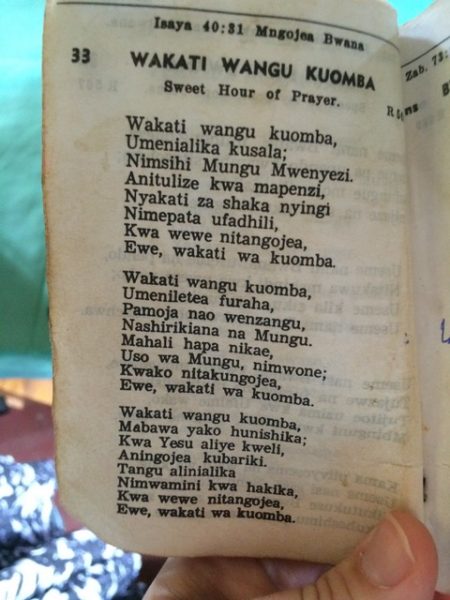 Isaya 40:31 Mngojea Bwana
33 WAKATI WANGU KUOMBA
Sweet Hour of Prayer.
Wakati wangu kuomba,
Umenialika kusala;
Nimsihi Mungu Mwenyezi.
Anitulize kwa mapenzi,
Nyakati za shaka nyingi
Nimepata ufadhili,
Kwa wewe nitangojea,
Ewe, wakati wa kuomba.
Wakati wangu kuomba,
Umeniletea furaha,
Pamoja nao wenzangu,
Nashirikiana na Mungu.
Mahali hapa nikae,
Uso wa Mungu, nimwone;
Kwako nitakungojea,
Ewe, wakati wa kuomba.
Wakati wangu kuomba,
Mabawa yako hunishika;
Kwa Yesu aliye kweli,
Aningojea kubariki.
Tangu alinialika
Nimwamini kwa hakika,
Kwa wewe nitangojea,
Ewe, wakati wa kuomba.
Zab. 73: